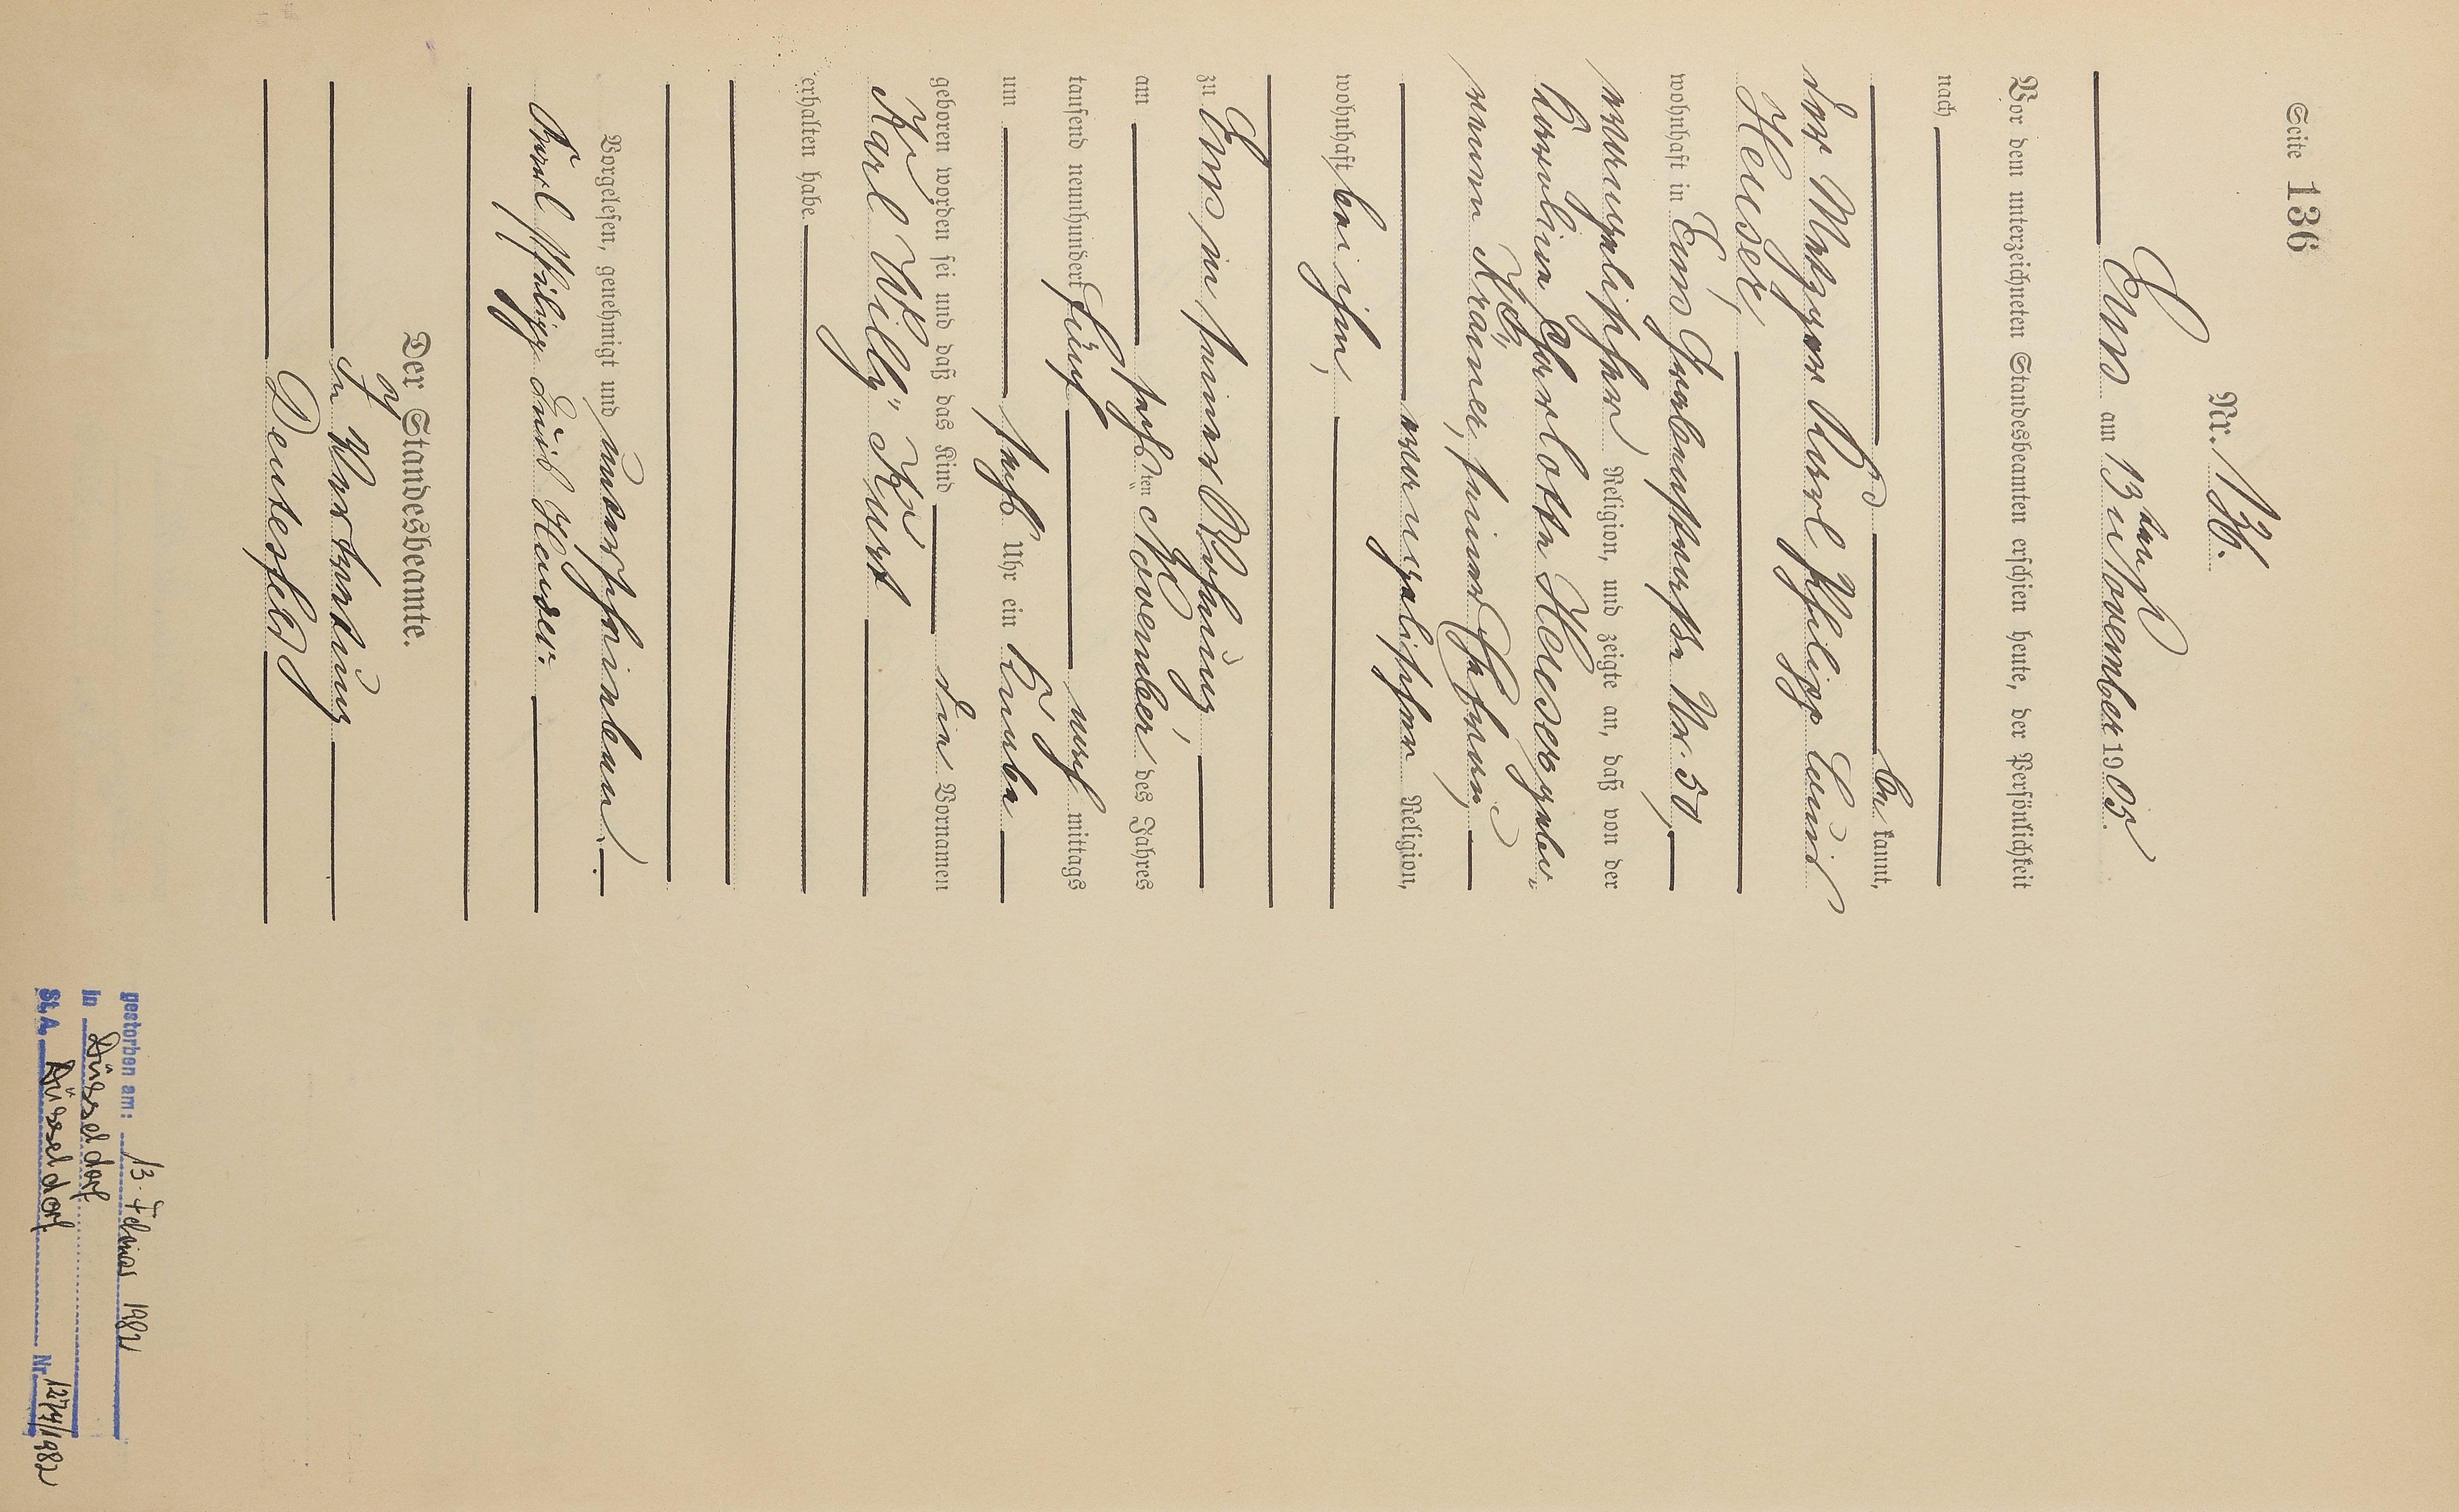 Seite 136
Nr. 136.
Ems am 13 ten November 1905.
Vor dem unterzeichneten Standesbeamten erschien heute, der Persönlichkeit
nach
be kannt,
der Metzger Karl Philipp Emil
Heuser,
wohnhaft in Ems Grabenstraße Nr. 50,
evangelischer Religion, und zeigte an, daß von der
Karoline Charlotte Heuser gebo-
renen Krämer, seiner Ehefrau,
evangelischer Religion,
wohnhaft bei ihm,
zu Ems in seiner Wohnung,
am sechs ten November des Jahres
tausend neunhundert fünf nach mittags
um sechs Uhr ein Knabe
geboren worden sei und daß das Kind die Vornamen
„Karl Willy“ Kurt
erhalten habe.
Vorgelesen, genehmigt und unterschrieben.
Karl Philipp Emil Heuser.
Der Standesbeamte.
In Vertretung
Deutesfeld
gestorben am: 13. Februar 1982
in Düsseldorf
St.A. Düsseldorf Nr. 1274/1982